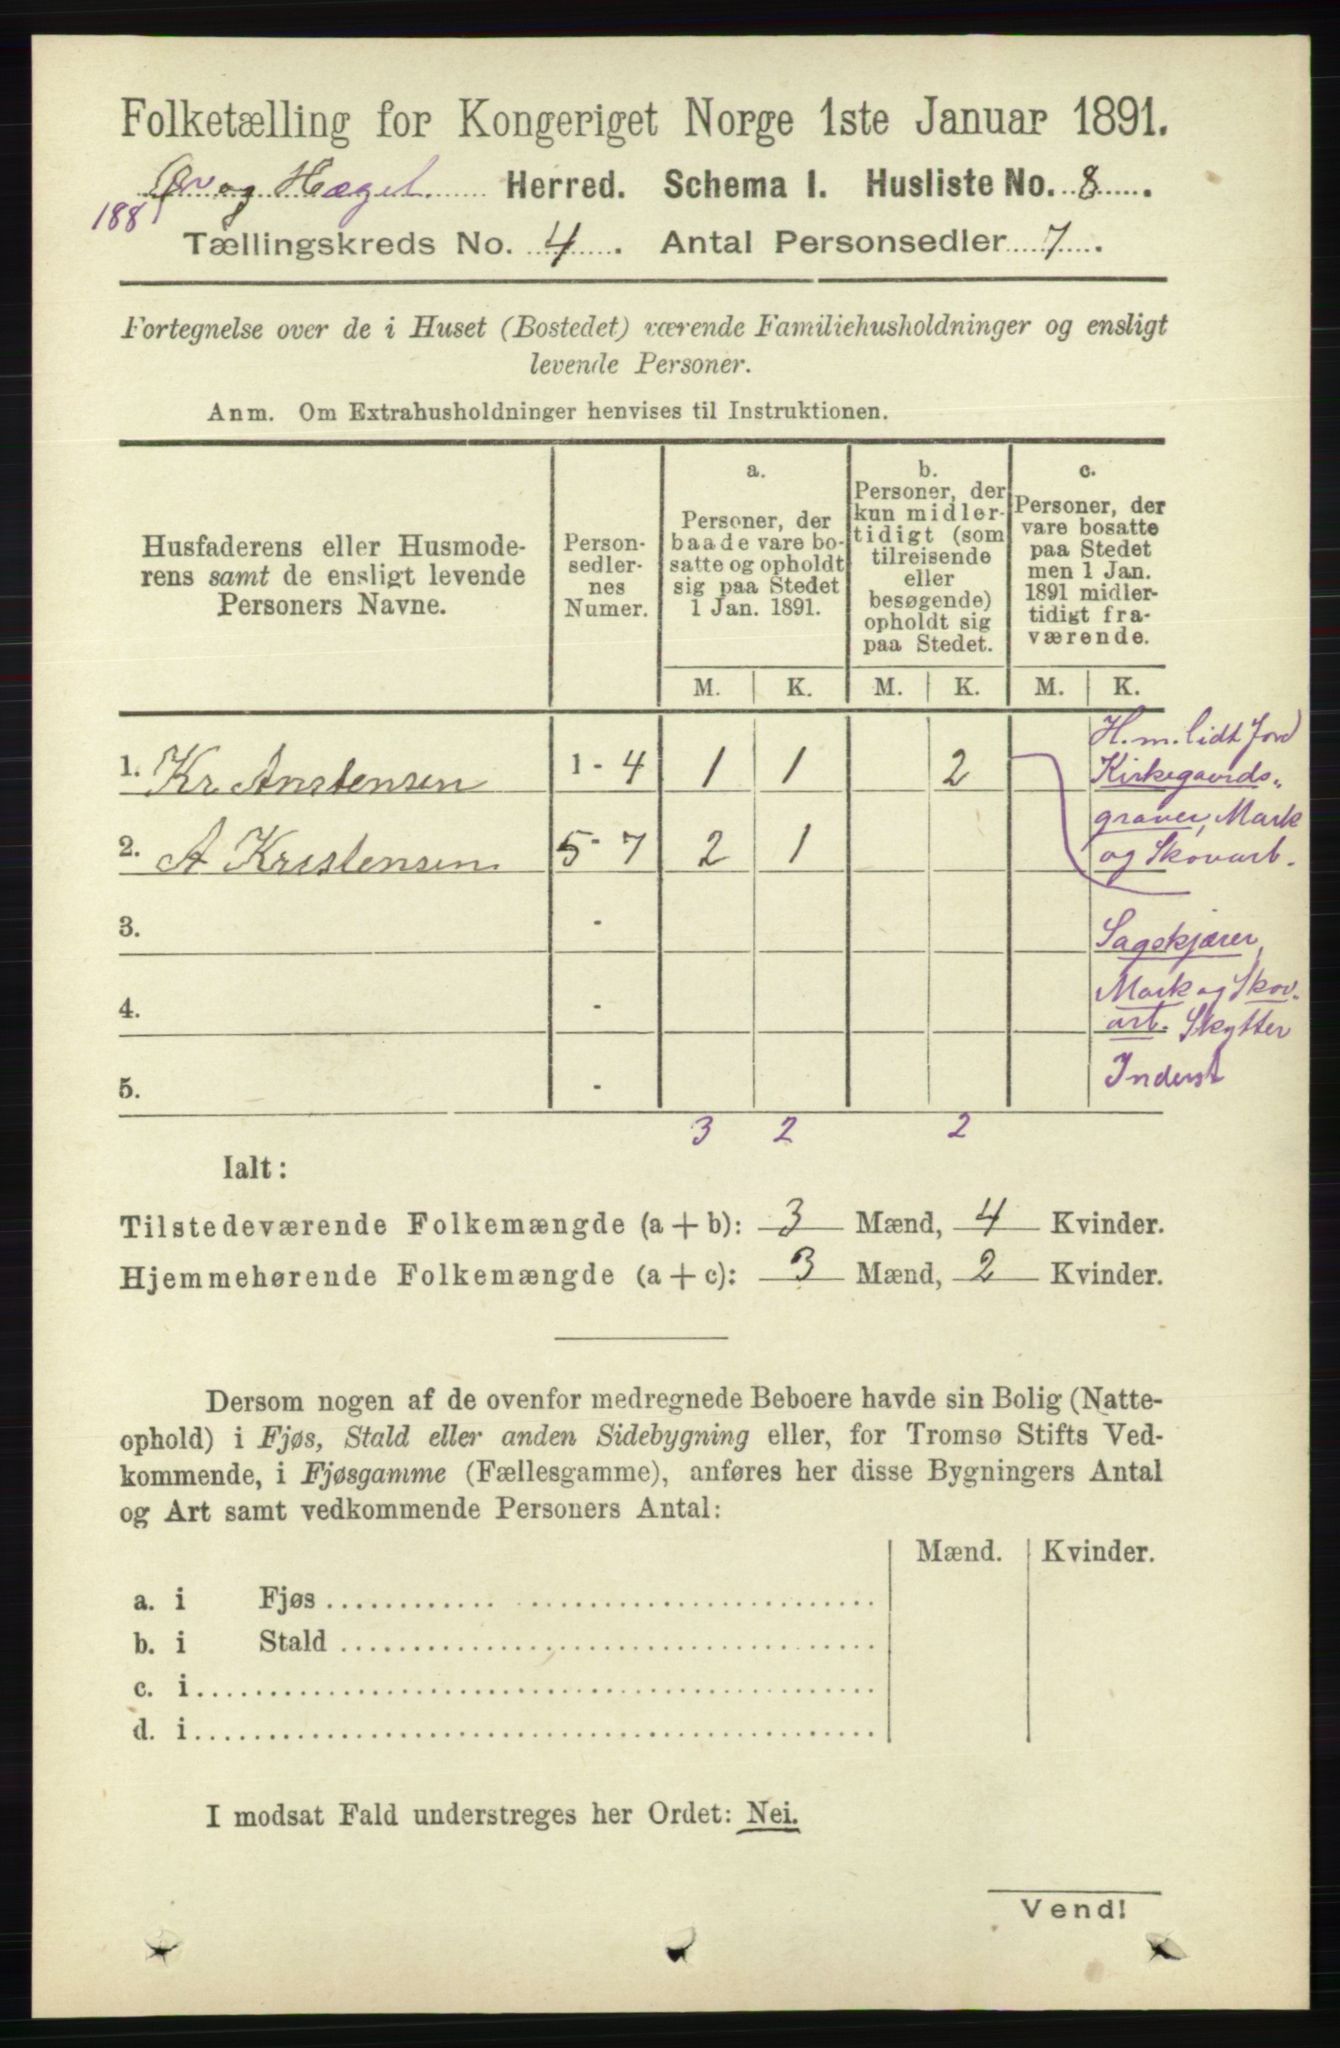 Folketælling for Kongeriget Norge 1ste Januar 1891.
Øv og Hæget. Herred. Schema I. Husliste No. 8.
188
Tællingskreds No. 4. Antal Personsedler 7.
Fortegnelse over de i Huset (Bostedet) værende Familiehusholdninger og ensligt
levende Personer.
Anm. Om Extrahusholdninger henvises til Instruktionen.
Husfaderens eller Husmode-
rens samt de ensligt levende
Personers Navne.
Person-
sedler-
nes
Numer.
a.
Personer, der
baade vare bo-
satte og opholdt
sig paa Stedet
1 Jan. 1891.
b.
Personer, der
kun midler-
tidigt (som
tilreisende
eller
besøgende)
opholdt sig
paa Stedet.
c.
Personer, der
vare bosatte
paa Stedet
men 1 Jan.
1891 midler-
tidigt fra-
værende.
M. K. M. K. M. K.
1. Kr Anstensen 1 - 4 1 1 2
H. m. lidt Jord
Kirkegaards-
graver, Mark
og Skovarb.
2. A Kristensen 5 - 7 2 1
3. -
Sagskjærer,
Mark og Skov.
arb. Skytter
Inderst
4. -
5. -
3 2 2
Ialt:
Tilstedeværende Folkemængde (a + b): 3 Mænd, 4 Kvinder.
Hjemmehørende Folkemængde (a + c): 3 Mænd, 2 Kvinder.
Dersom nogen af de ovenfor medregnede Beboere havde sin Bolig (Natte-
ophold) i Fjøs, Stald eller anden Sidebygning eller, for Tromsø Stifts Ved-
kommende, i Fjøsgamme (Fællesgamme), anføres her disse Bygningers Antal
og Art samt vedkommende Personers Antal:
Mænd. Kvinder.
a. i Fjøs
b. i Stald
c. i
d. i
I modsat Fald understreges her Ordet: Nei.
Vend!